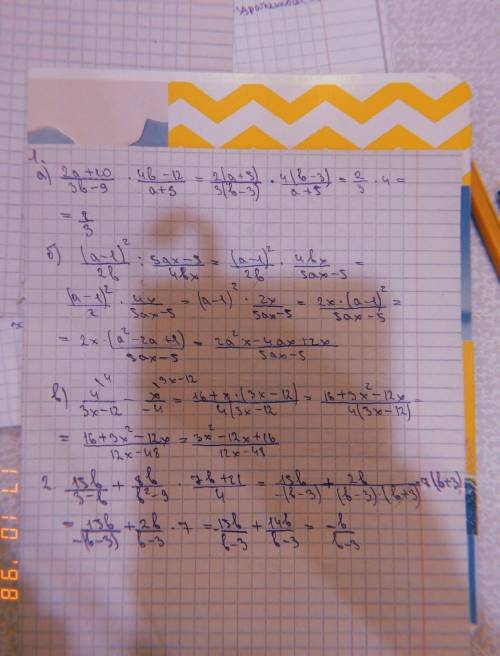 1.
а) (2a+20)/(3b-9) · (4b-12)/(a+5) = (2(a+5))/(3(b-3)) · (4(b-3))/(a+5) = 2/3 · 4 =
= 8/3
б) (a-1)²/2b : (5ax-5)/4bx = (a-1)²/2b · 4bx/(5ax-5) =
(a-1)²/2 · 4x/(5ax-5) = (a-1)² · 2x/(5ax-5) = (2x·(a-1)²)/(5ax-5) =
= (2x·(a²-2a+1))/(5ax-5) = (2a²x-4ax+2x)/(5ax-5)
в) 4\4/(3x-12) - x\3x-12/-4 = (16+x·(3x-12))/(4(3x-12) = (16+3x²-12x)/(4(3x-12)) =
= (16+3x²-12x)/(12x-48) = (3x²-12x+16)/(12x-48)
2. 15b/(3-b) + 8b/(b²-9) · (7b+21)/4 = 15b/(-(b-3)) + 2b/((b-3)·(b+3)) · 7(b+3)
= 15b/(-(b-3)) + 2b/(b-3) · 7 = -15b/(b-3) + 14b/(b-3) = -b/(b-3)
17 10 '98